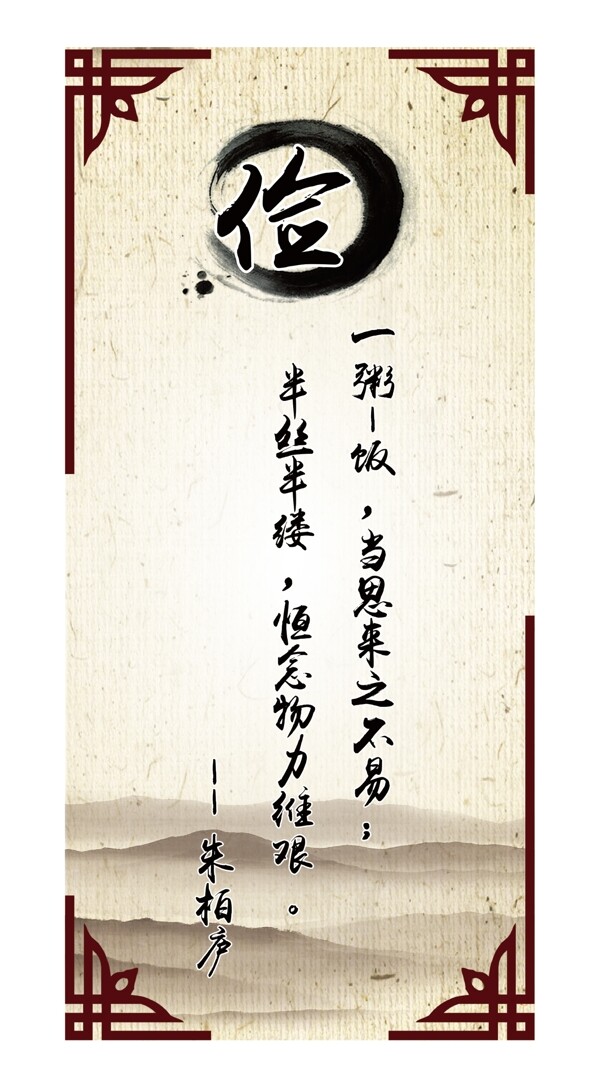 俭
一粥一饭，当思来之不易；
半丝半缕，恒念物力维艰。
——朱柏庐